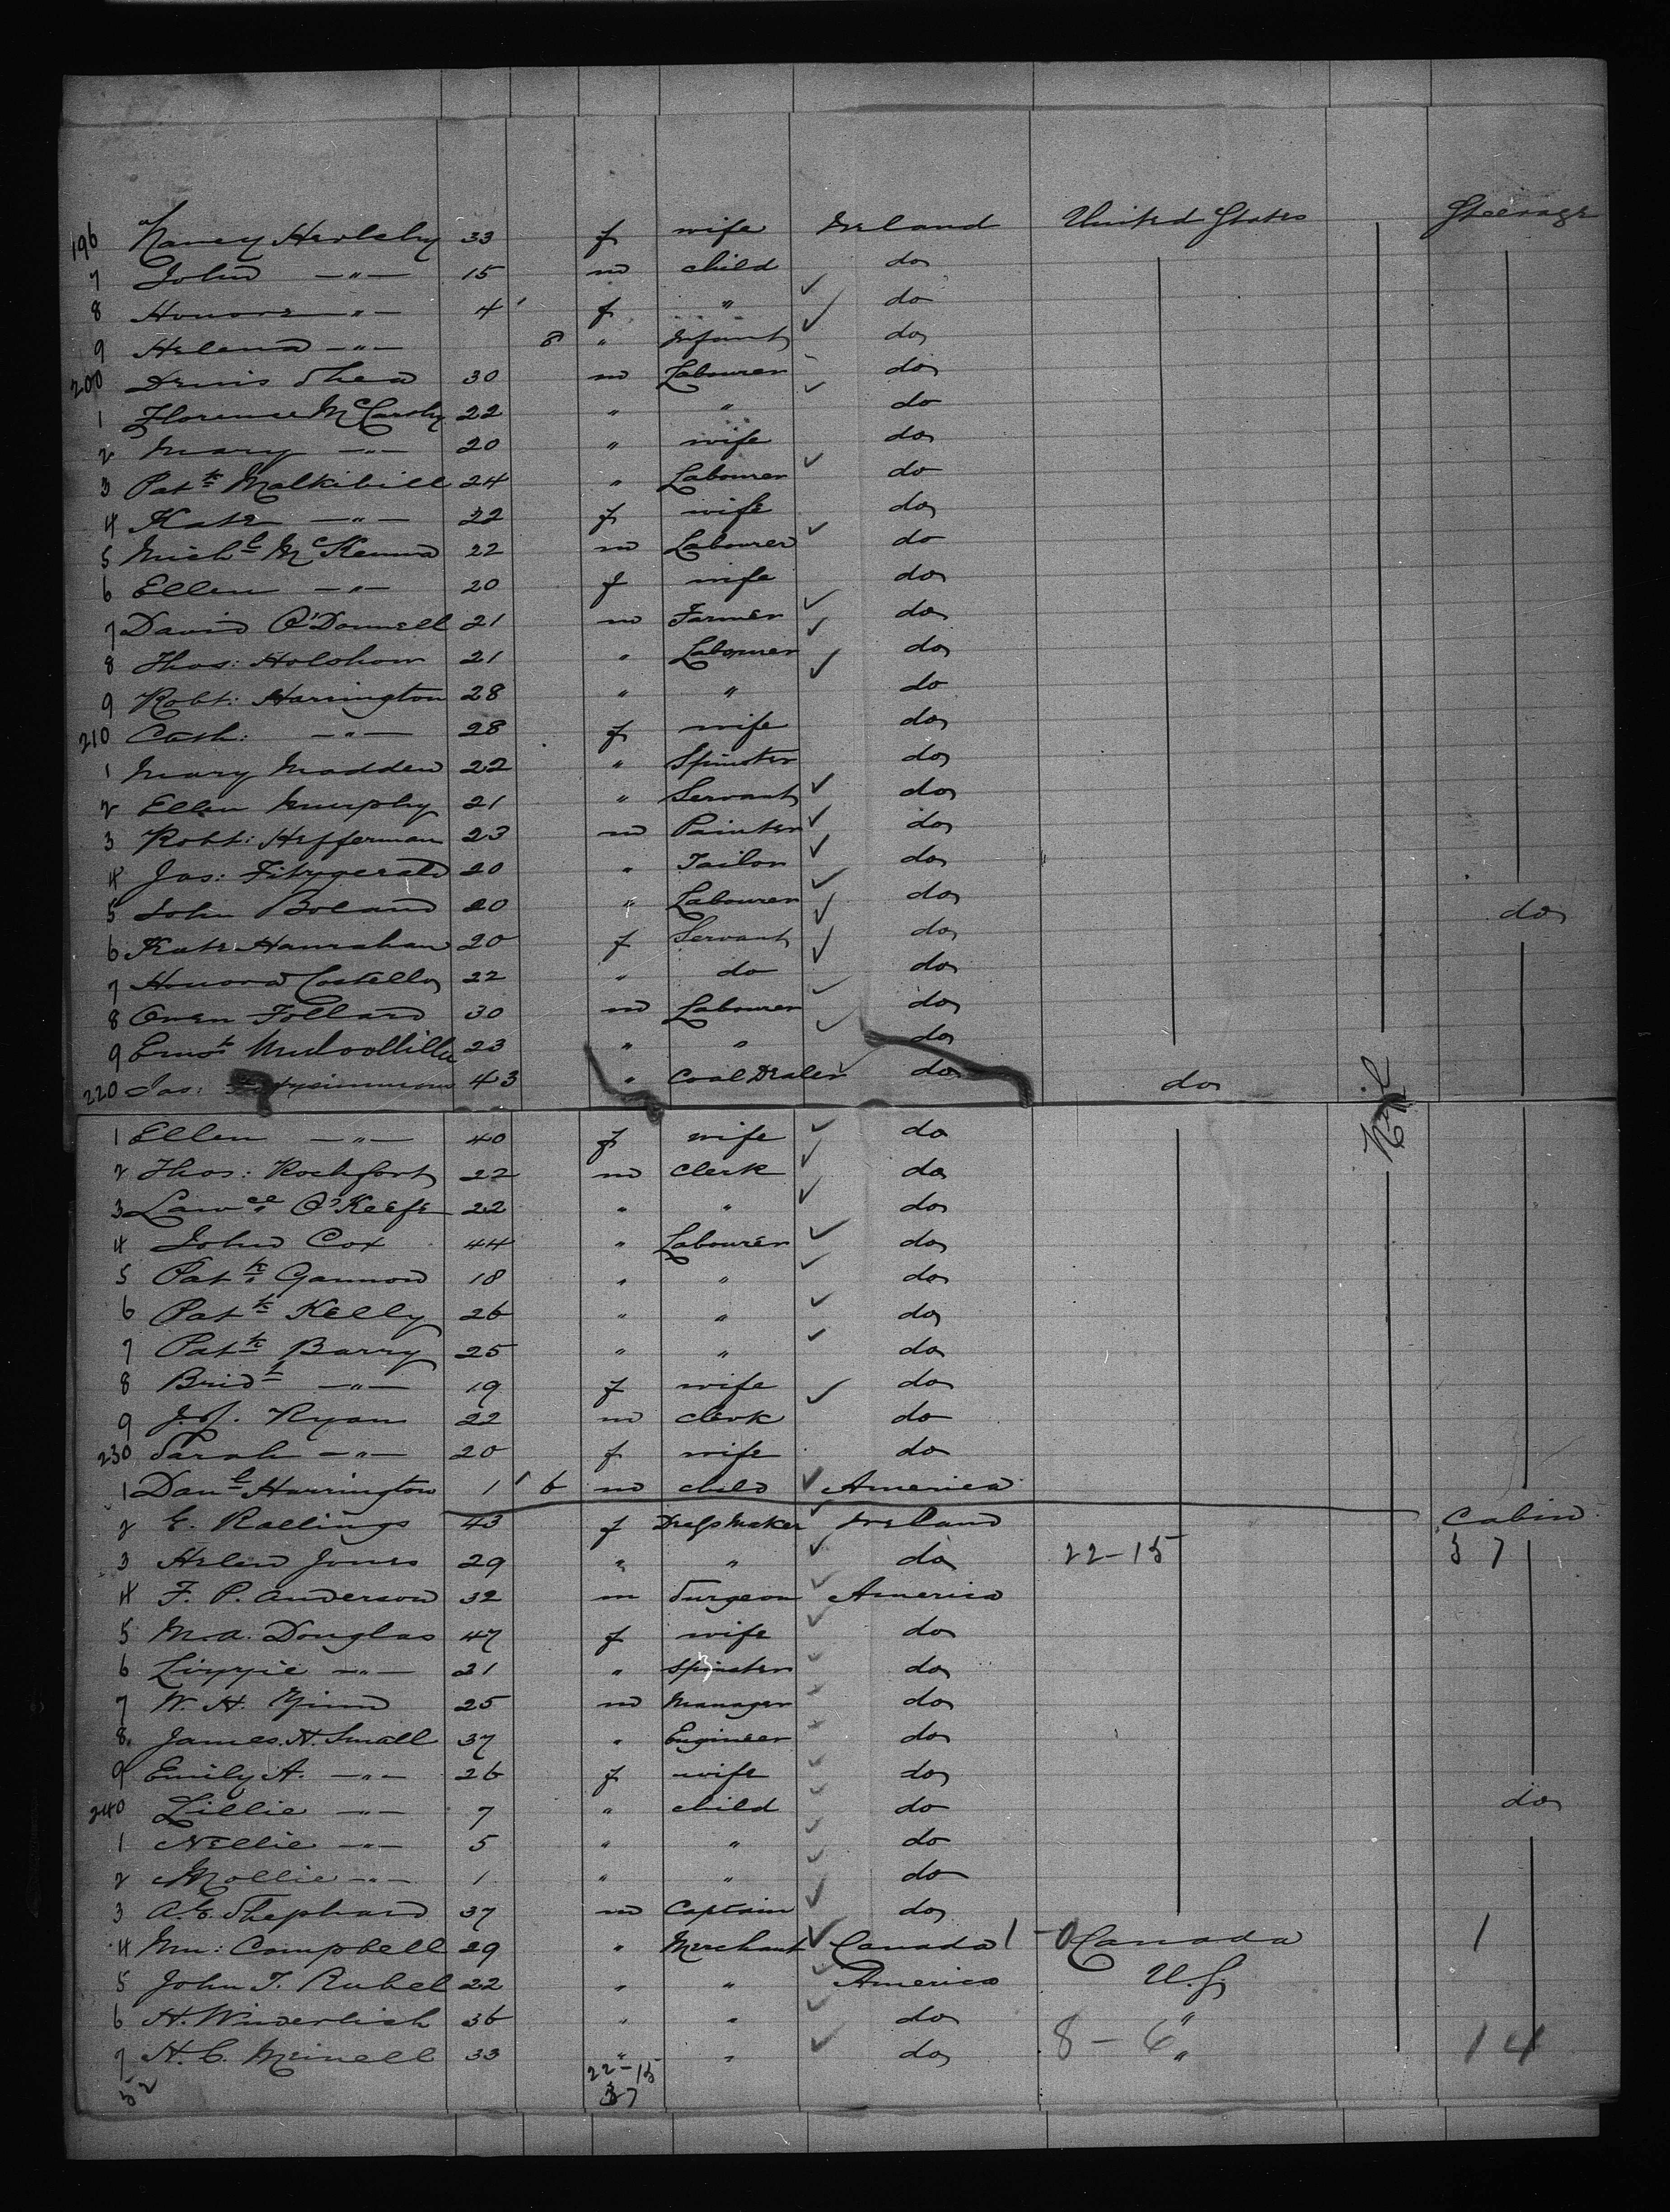 196 Nancy Herlihy 33 f wife Ireland United States Steerage
7 John —"— 15 m child do
8 Honora —"— 4 f " do
9 Helena —"— 8 " Infant do
200 Denis Shea 30 m Labourer do
1 Florence McCarthy 22 " " do
2 Mary —"— 20 " wife do
3 Patk 24 " Labourer do
4 Kate —"— 22 f wife do
5 Michl McKenna 22 m Labourer do
6 Ellen —"— 20 f wife do
7 David O'Donnell 21 m Farmer do
8 Thos: Holohan 21 " Labourer do
9 Robt: Harrington 28 " " do
210 Cath: —"— 28 f wife do
1 Mary Madden 22 " Spinster do
2 Ellen Murphy 21 " Servant do
3 Robt: Hefferman 23 m Painter do
4 Jas: Fitzgerald 20 " Tailor do
5 John Boland 20 " Labourer do do
6 Kate Hanrahan 20 f Servant do
7 Honora Costello 22 " do do
8 Owen Follard 30 m Labourer do
9 Ernst 23 " " do
220 Jas: 43 " Coal Dealer do do Nil
1 Ellen —"— 40 f wife do
2 Thos: Rochfort 22 m Clerk do
3 Lawce O'Keefe 22 " " do
4 John Cox 44 " Labourer do
5 Patk Gannon 18 " " do
6 Patk Kelly 26 " " do
7 Patk Barry 25 " " do
8 Bridt —"— 19 f wife do
9 J.J. Ryan 22 m clerk do
230 Sarah —"— 20 f wife do
1 Danl Harrington 1 6 m child America
2 E. Rallings 43 f Dressmaker Ireland Cabin
3 Helen Jones 29 " " do 22-15 37
4 F. P. Anderson 32 m Surgeon America
5 M.A. Douglas 47 f wife do
6 Lizzie —"— 21 " Spinster do
7 W. H. 25 m Manager do
8 James H. Small 37 " Engineer do
9 Emily A. —"— 26 f wife do
240 Lillie —"— 7 " child do do
1 Nellie —"— 5 " " do
2 Mollie —"— 1 " " do
3 A.E. Shephard 37 m Captain do
4 Wm: Campbell 29 " Merchant Canada 1-0 Canada 1
5 John T. Rubel 22 " " America U.S.
6 H. Winderlich 36 " " do "
7 H. C. Meinell 33 " " do 8-6 " 14
52 22-15
37